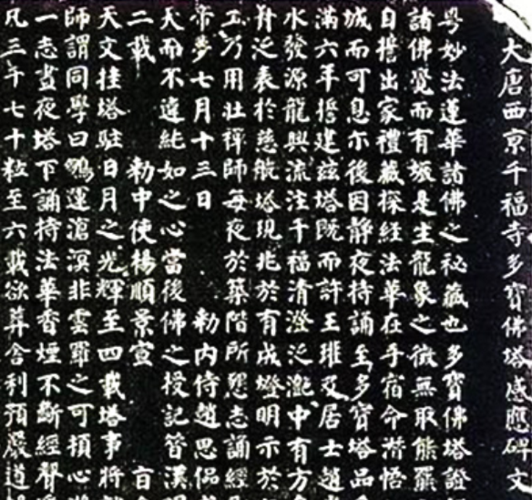 大唐西京千福寺多寶佛塔感應碑文
粵妙法蓮華諸佛之秘藏也多寶佛塔證
諸佛覺而有娠是生龍象之徵無取熊羆
自誓出家禮藏探經法華在手宿命潛悟
城而可息尒後因靜夜持誦至多寶塔品
滿六年誓建茲塔既而許王瓘及居士趙
水發源龍興流注千福清澄泛灔中有方
舟泛表於慈航塔現兆於有成燈明示於
工乃用壯禪師每夜於築階所懇志誦經
帝夢七月十三日 勑內侍趙思侃
天而不違純如之心當後佛之授記昔漢
二載 勑中使楊順景宣 旨
天文挂塔駐日月之光輝至四載塔事將
師謂同學曰鵬運滄溟非雲羅之可頓心
一志晝夜塔下誦持法華香煙不斷經聲
凡三千七十粒至六載欲葬舍利預嚴道